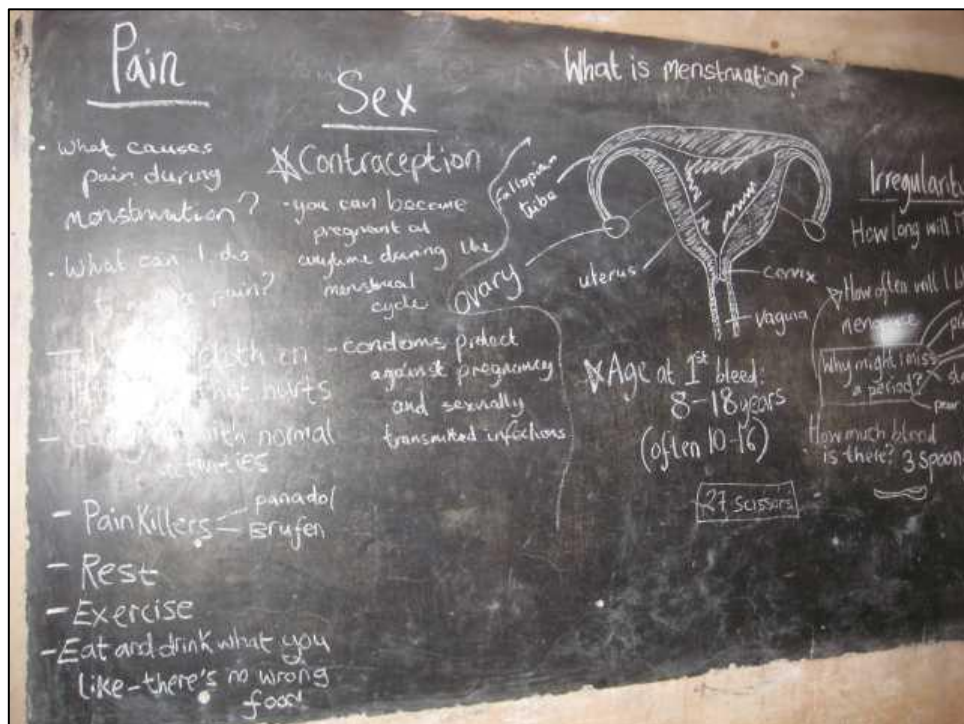 Pain
• What causes
pain during
menstruation?
• What can I do
pain?
hurts
with normal
- Pain Killers
panadol
Brufen
- Rest
- Exercise
- Eat and drink what you
like - there's no wrong
food
Sex
Contraception
- you can become
pregnant at
anytime during the
menstrual
cycle
- condoms protect
against pregnancy
and sexually
transmitted infections
What is menstruation?
Fallopian
tube
Ovary
uterus
cervix
vagina
Age at 1st bleed:
8-18 years
(often 10-16)
27 scissors
How long will I
How often will I
Why might I miss
a period?
How much blood
is there? 3 spoon